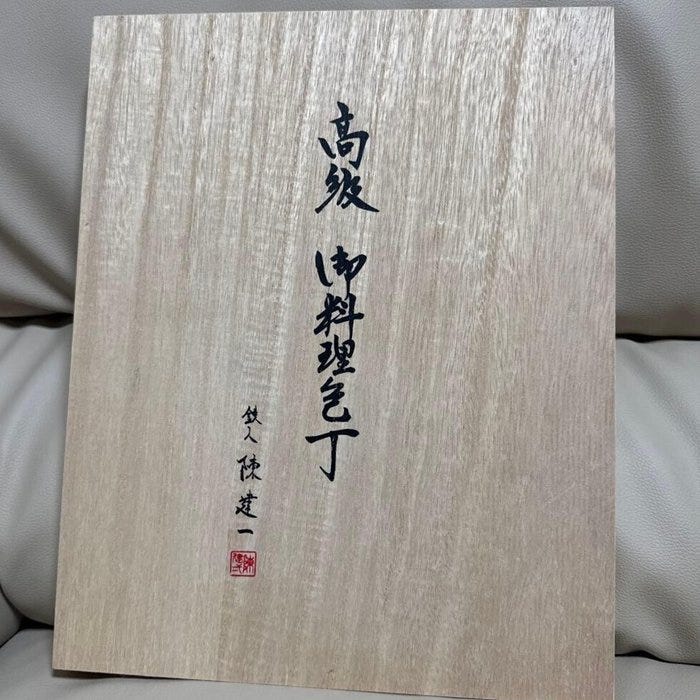 高級 御料理包丁
鉄人 陳建一